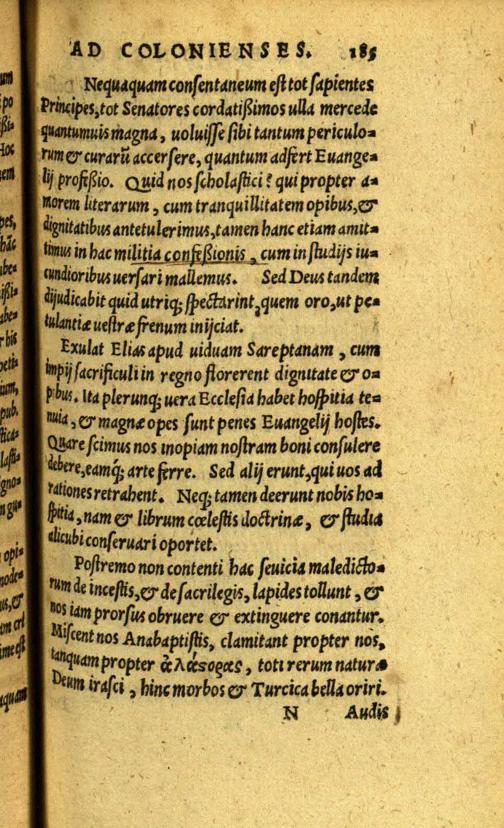 AD COLONIENSES. 185
Nequaquam consentaneum est tot sapientes
Principes, tot Senatores cordatißimos ulla mercede
quantumuis magna, uoluisse sibi tantum periculo=
rum & curarũ accersere, quantum adfert Euange=
lij profeßio. Quid nos scholastici? qui propter a=
morem literarum, cum tranquillitatem opibus, &
dignitatibus antetulerimus, tamen hanc etiam amit=
timus in hac militia confeßionis, cum in studijs iu=
cundioribus uersari mallemus. Sed Deus tandem
dijudicabit quid utriq; spectarint, quem oro, ut pe=
tulantiæ uestræ frenum inijciat.
Exulat Elias apud uiduam Sareptanam, cum
impij sacrificuli in regno florerent dignitate & o=
pibus. Ita plerunq; uera Ecclesia habet hospitia te=
nuia, & magnæ opes sunt penes Euangelij hostes.
Quare scimus nos inopiam nostram boni consulere
debere, eamq́; arte ferre. Sed alij erunt, qui uos ad
rationes retrahent. Neq; tamen deerunt nobis ho=
spitia, nam & librum cœlestis doctrinæ, & studia
alicubi conseruari oportet.
Postremo non contenti hac seuicia maledicto=
rum de incestis, & de sacrilegis, lapides tollunt, &
nos iam prorsus obruere & extinguere conantur.
Miscent nos Anabaptistis, clamitant propter nos,
tanquam propter ἀλάσορας, toti rerum naturæ
Deum irasci, hinc morbos & Turcica bella oriri.
N Audis